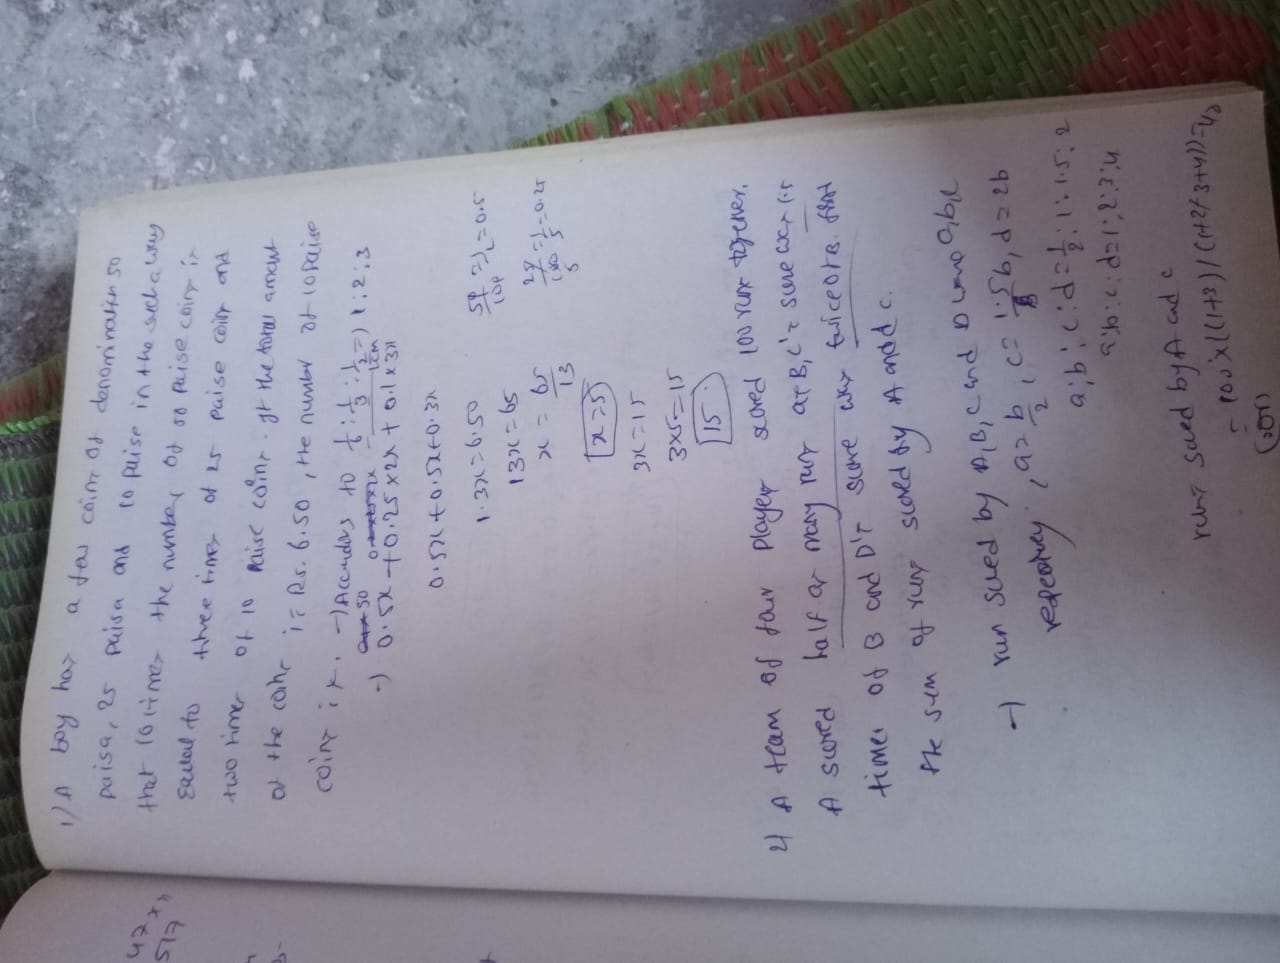 1) A boy has a few coins of denomination 50
paisa, 25 paisa and 10 paise in the such a way
that 10 times the number of 50 paise coins is
equal to three times of 25 paise coins and
two times of 10 paise coins. If the total amount
of the coins is Rs. 6.50, the number of 10 paise
coins is. → According to 1/6 : 1/3 : 1/2 ⇒ 1 : 2 : 3
50
→) 0.5x + 0.25 x 2x + 0.1 x 3x
0.5x + 0.5x + 0.3x
1.3x = 6.50
13x = 65
x = 65/13
x = 5
3x = 15
3x5 = 15
15.
= 1/2 = 0.5
= 0.25
2) A team of four player scored 100 runs together.
A scored half as many runs as B, C's score was 1.5
times of B and D's score was twice of B. find
the sum of runs scored by A and C.
→ run scored by A, B, C and D
a = b/2, c = 1.5b, d = 2b
a : b : c : d = 1/2 : 1 : 1.5 : 2
a : b : c : d = 1 : 2 : 3 : 4
runs scored by A and C
= 100 x ((1+3)) / (1+2+3+4)) = 40
42 x
517